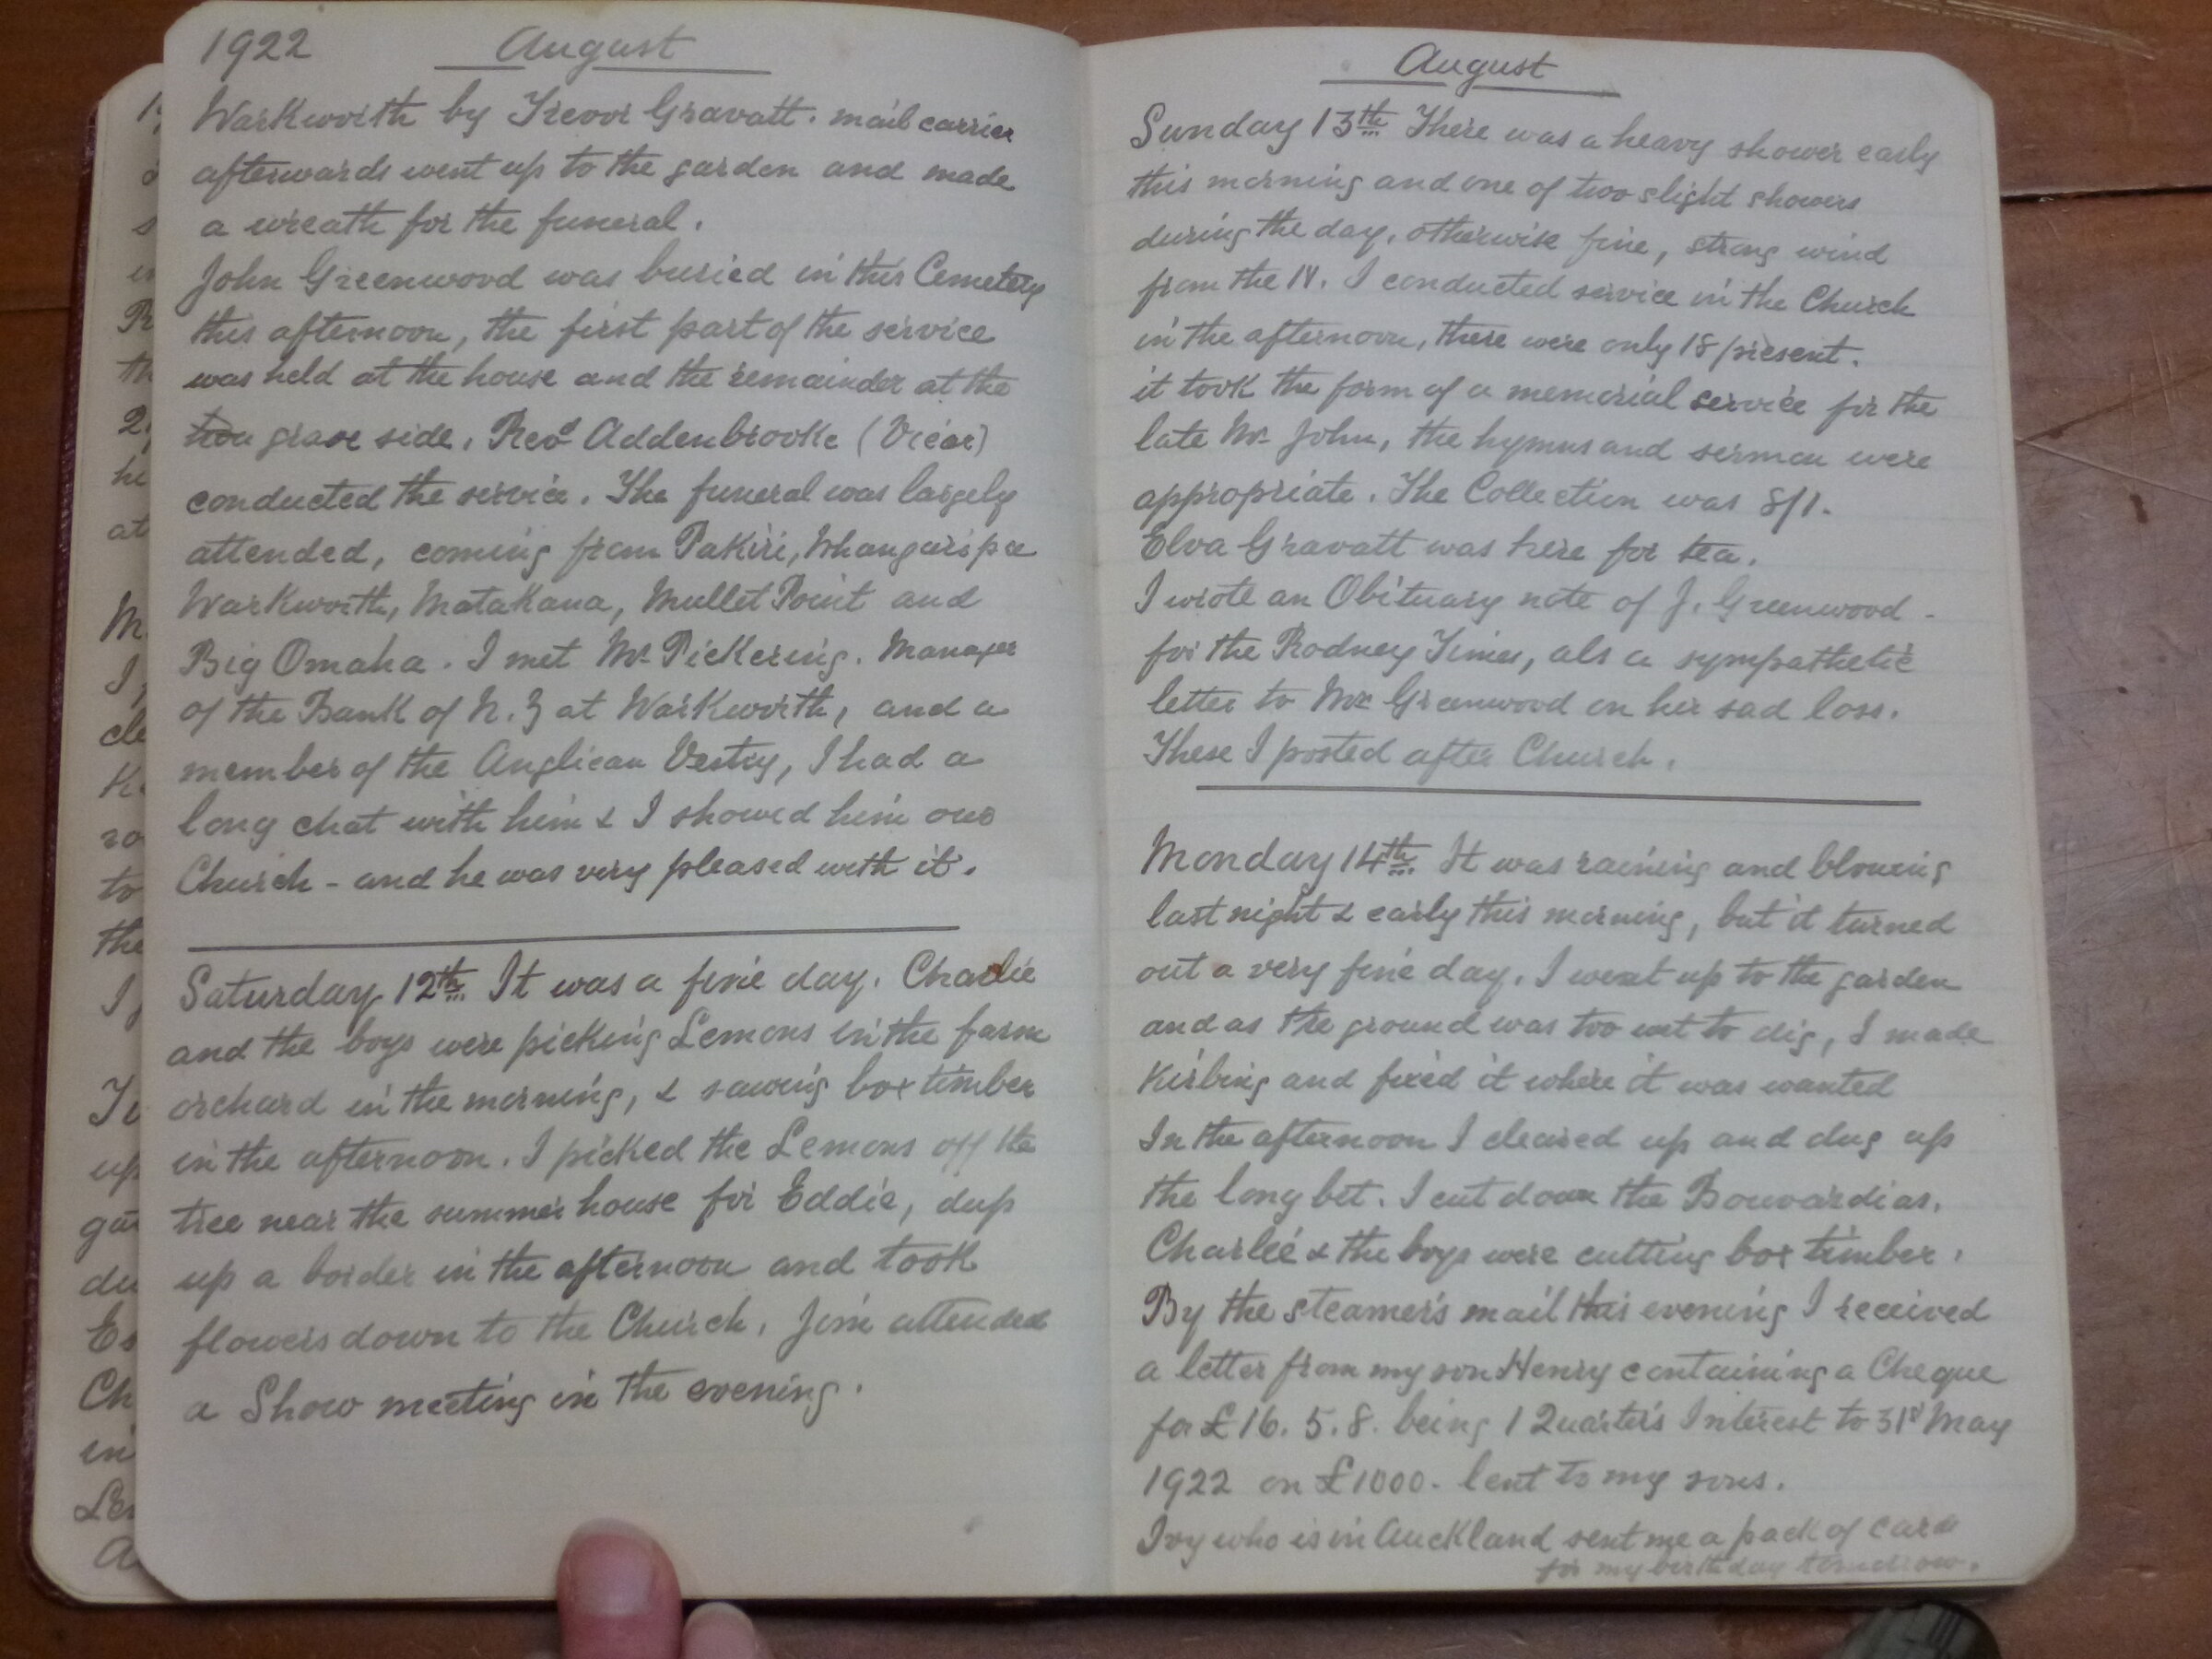 1922 August
Warkworth by Trevor Gravatt. mail carrier
afterwards went up to the garden and made
a wreath for the funeral.
John Greenwood was buried in this Cemetery
this afternoon, the first part of the service
was held at the house and the remainder at the
grave side. Revd Addenbrooke (Vicar)
conducted the service. The funeral was largely
attended, coming from Pakiri, Whangaripa
Warkworth, Matakana, Mullet Point and
Big Omaha. I met Mr Pickering. Manager
of the Bank of N.Z at Warkworth, and a
member of the Anglican Vestry, I had a
long chat with him & I showed him our
Church - and he was very pleased with it.
Saturday 12th It was a fine day. Charlie
and the boys were picking Lemons in the farm
orchard in the morning, & sawing box timber
in the afternoon. I picked the Lemons off the
tree near the summer house for Eddie, dug
up a border in the afternoon and took
flowers down to the Church. Jim attended
a Show meeting in the evening.
August
Sunday 13th There was a heavy shower early
this morning and one of two slight showers
during the day, otherwise fine, strong wind
from the N. I conducted service in the Church
in the afternoon, there were only 18 present.
it took the form of a memorial service for the
late Mr John, the hymns and sermon were
appropriate. The Collection was 8/1.
Elva Gravatt was here for tea.
I wrote an Obituary note of J. Greenwood -
for the Rodney Times, als a sympathetic
letter to Mrs Greenwood on her sad loss.
These I posted after Church.
Monday 14th It was raining and blowing
last night & early this morning, but it turned
out a very fine day. I went up to the garden
and as the ground was too wet to dig, I made
Kirbing and fixed it where it was wanted
In the afternoon I cleared up and dug up
the long bet. I cut down the Bouvardias.
Charlie & the boys were cutting box timber.
By the steamer's mail this evening I received
a letter from my son Henry containing a Cheque
for £16. 5. 8. being 1 Quarter's Interest to 31st May
1922 on £1000. lent to my sons.
Ivy who is in Auckland sent me a pack of cards
for my birthday tomorrow.